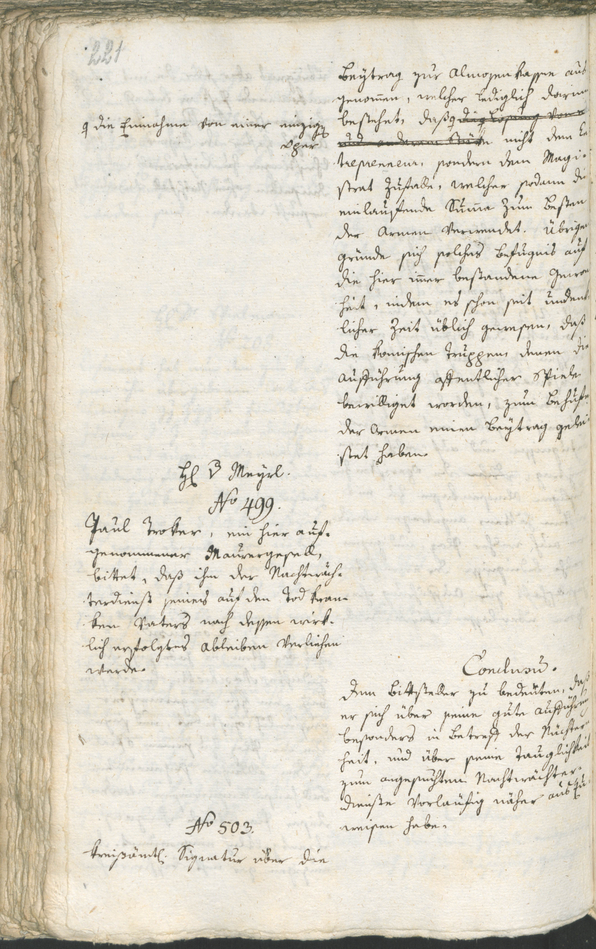 221
Beytrag zur Almosenkasse aus
genommen, welcher lediglich darin
bestehet, daß
die Einnahme von einer einzigen
Oper
nicht dem En
trepreneur, sondern dem Magi-
strat Zufalle, welcher sodann die
einlaufende Summe zum Besten
der Armen Verwendet. Übrigens
gründe sich solches Befugnis auf
die hier immer bestandene Gewon
heit, indem es schon seit undenk
licher Zeit üblich gewesen, daß
die komischen Truppen, denen die
Aufführung öffentlicher Spiele
bewilliget worden, zum Behufe
der Armen einen Beytrag gelei
stet haben.
H v Meyrl.
No 499.
Paul Troker, ein hier auf-
genommener Maurergesell,
bittet, daß ihm der Nachtwäch-
terdienst seines auf den Tod kran-
ken Vaters nach dessen wirk-
lich erfolgtes Ableiben Verliehen
werde.
Conclusum.
Dem Bittsteller zu bedeuten, daß
er sich über seine gute Aufführung
besonders in Betreff der Nüchtern
heit, und über seine Tauglichkeit
zum angesuchten Nachtwächter-
dienste Vorläufig näher auszu
weisen habe.
No 503.
Kreißämtl. Signatur über die